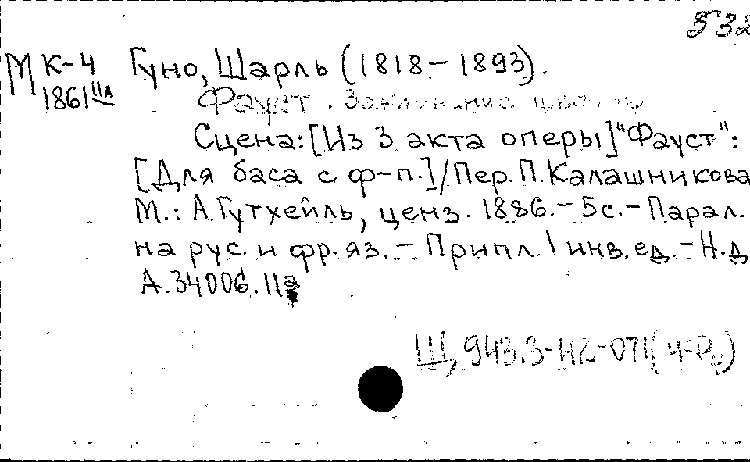 532
М К-4 Гуно, Шарль (1818-1893).
1861 IIл
Фауст. Заклинание цветов
Сцена: [Из 3 акта оперы] "Фауст":
[Для баса с ф-п.]/Пер. П. Калашникова
М.: А. Гутхейль, ценз. 1886. - 5с. - Парал.
на рус. и фр. яз. - Припл. 1 инв. ед. - Н.д.
А.34006.11а
Щ 943.3-42-071(4-Р)